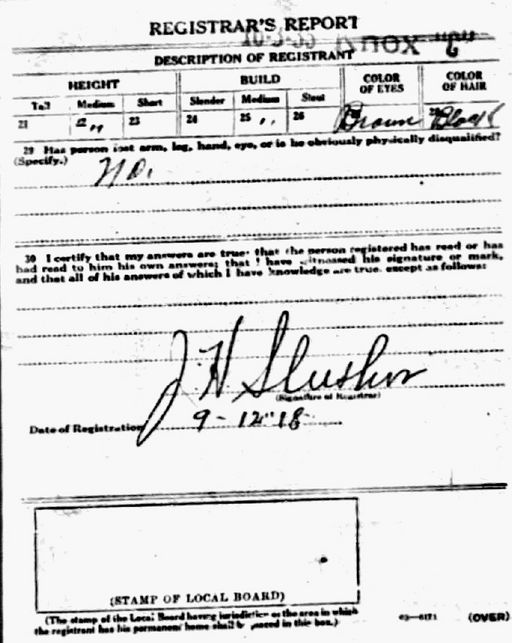 REGISTRAR'S REPORT
DESCRIPTION OF REGISTRANT
HEIGHT BUILD COLOR OF EYES COLOR OF HAIR
Tall Medium Short Slender Medium Stout
21 22 " 23 24 25 " 26 Brown 28 Black
29 Has person lost arm, leg, hand, eye, or is he obviously physically disqualified?
(Specify.) No.
30 I certify that my answers are true; that the person registered has read or has
had read to him his own answers; that I have witnessed his signature or mark,
and that all of his answers of which I have knowledge are true, except as follows:
J H Slusher
(Signature of Registrar)
Date of Registration 9-12"18
(STAMP OF LOCAL BOARD)
(The stamp of the Local Board having jurisdiction of the area in which
the registrant has his permanent home shall be placed in this box.)
03—6171 (OVER)